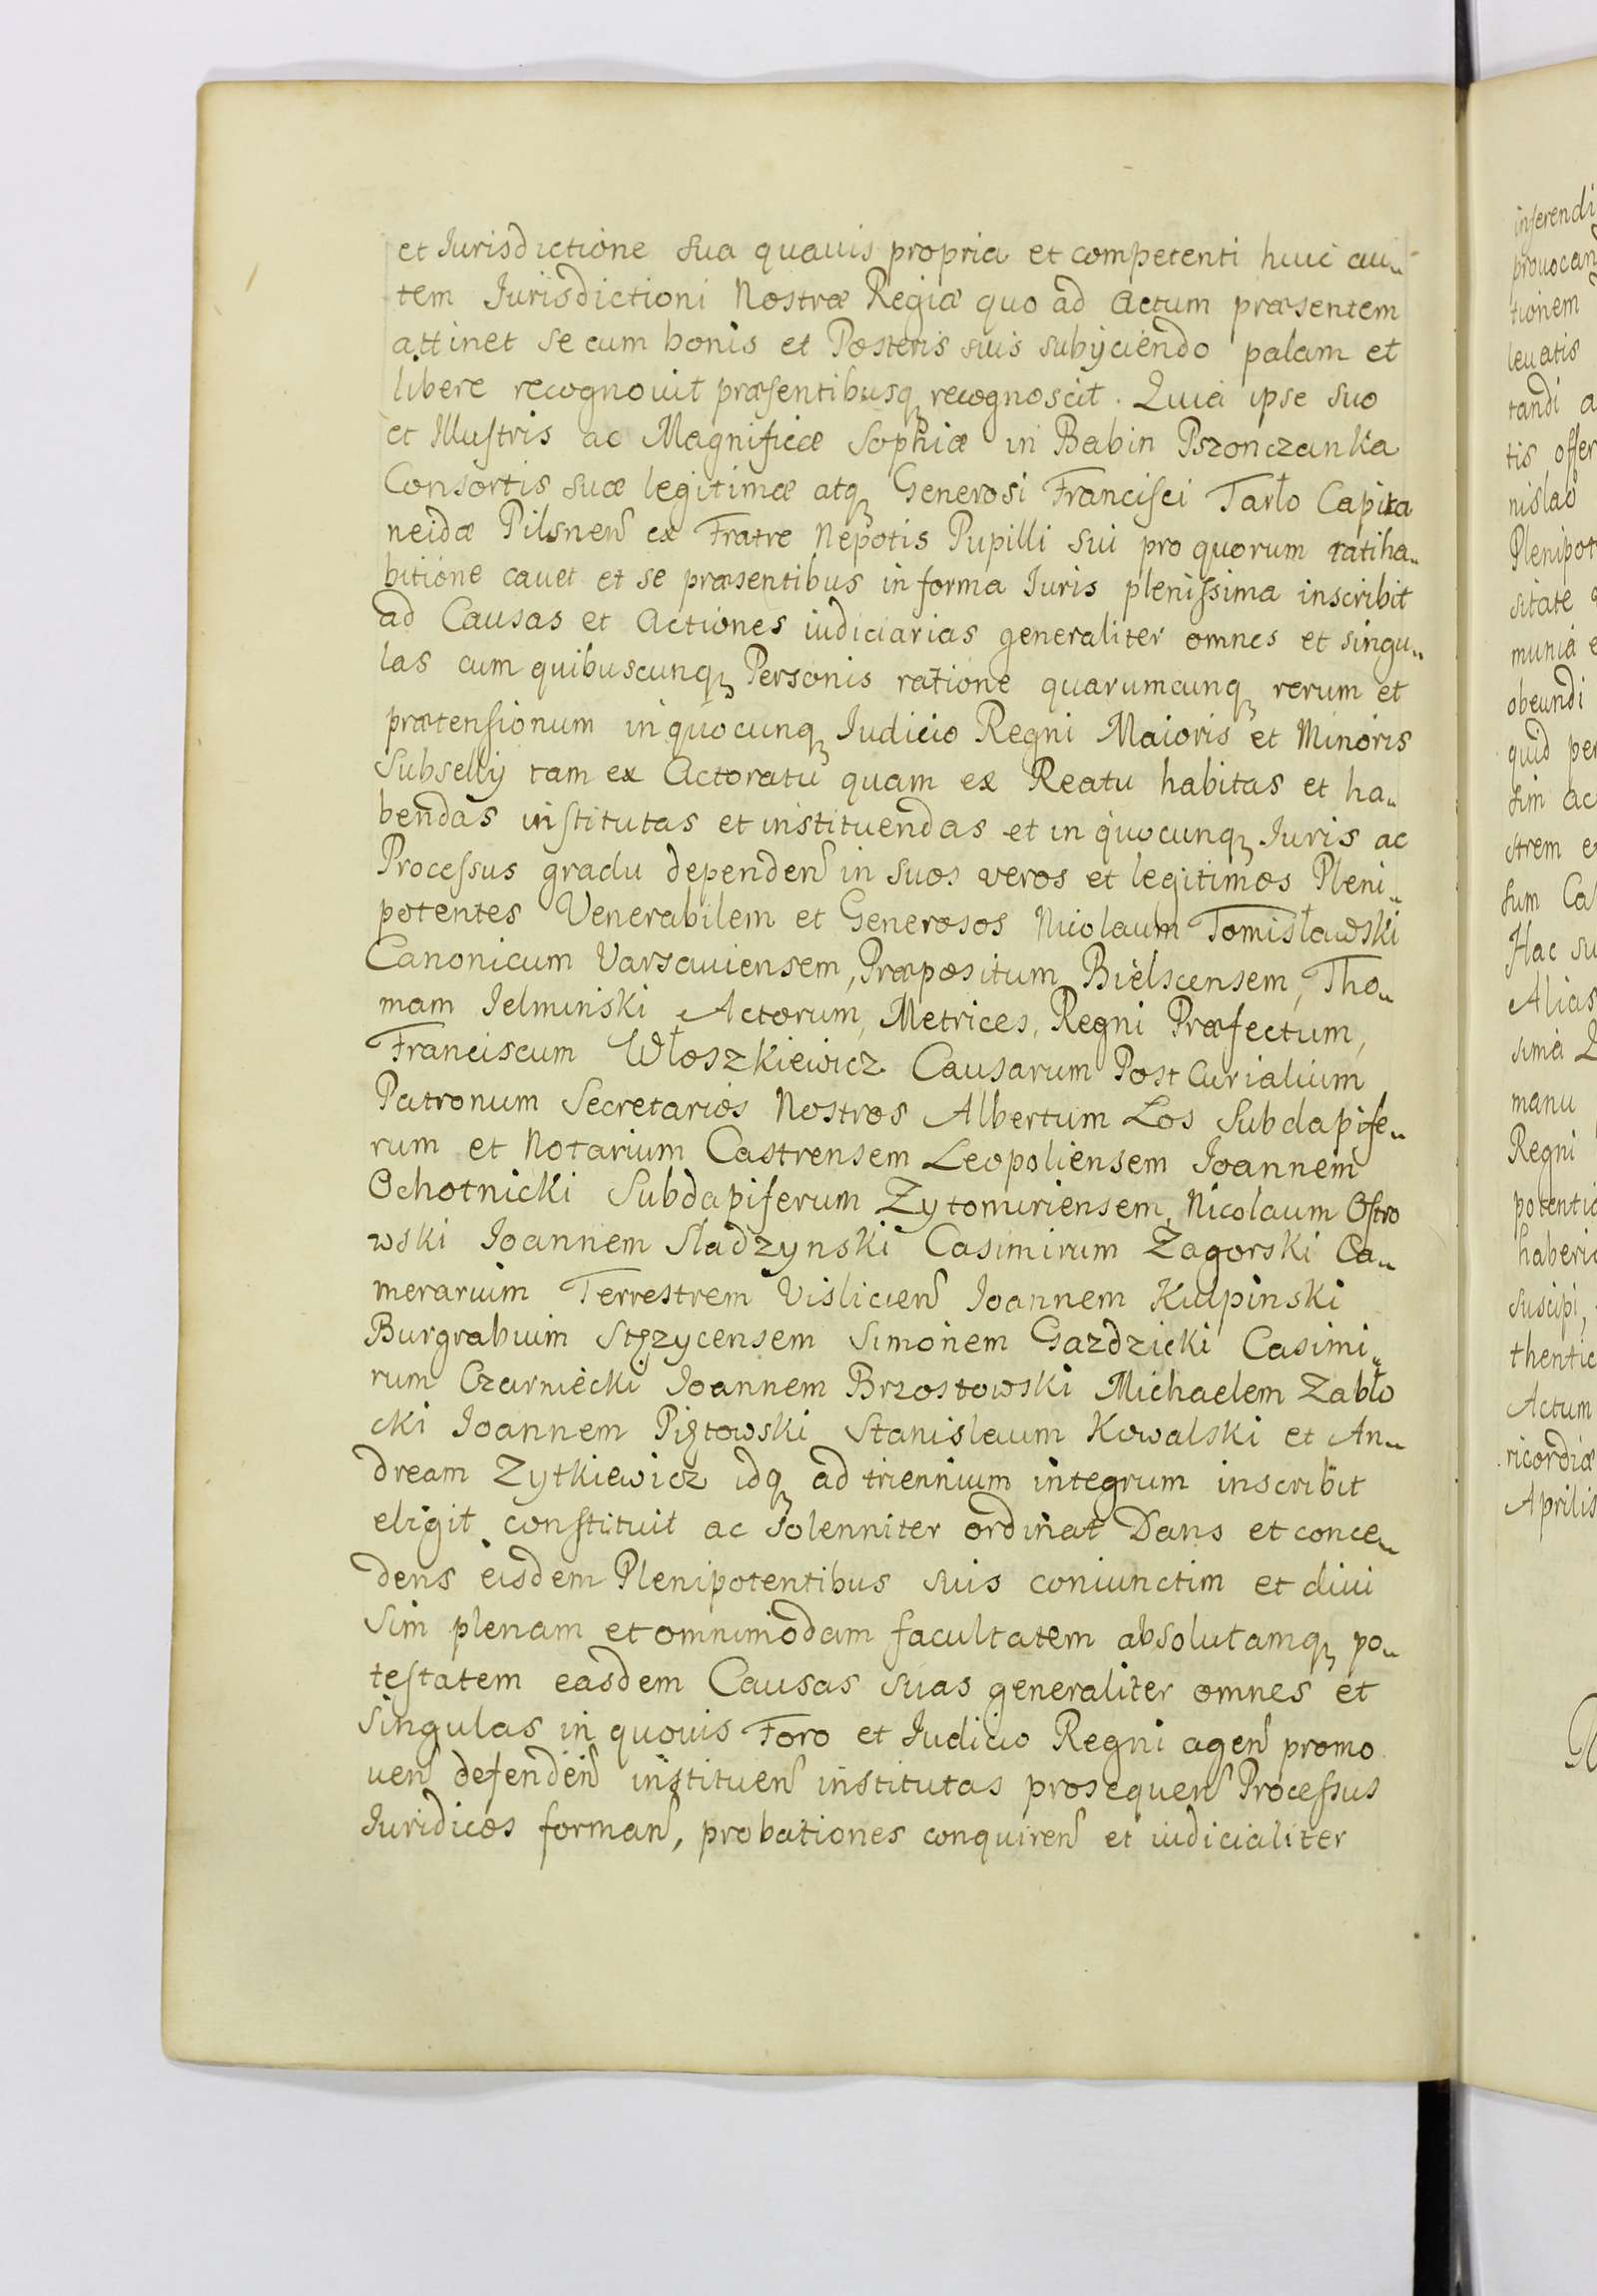 et Iurisdictione sua quauis propria et competenti huic au„
tem Iurisdictioni Nostræ Regiæ quo ad Actum præsentem
attinet se cum bonis et Posteris suis subÿciendo palam et
libere recognouit præsentibusq recognoscit. Quia ipse suo
et Illustris ac Magnificæ Sophiæ in Babin Pszonczanka
Consortis suæ legitimæ atq Generosi Francisci Tarło Capita
neidæ Pilsnen ex Fratre Nepotis Pupilli sui pro quorum ratiha„
bitione cauet et se præsentibus in forma Iuris plenissima inscribit
ad Causas et Actiones iudiciarias generaliter omnes et singu„
las cum quibuscunq Personis ratione quarumcunq rerum et
prætensionum in quocunq Iudicio Regni Maioris et Minoris
Subsellÿ tam ex Actoratu quam ex Reatu habitas et ha„
bendas institutas et instituendas et in quocunq Iuris ac
Processus gradu dependen in suos veros et legitimos Pleni„
potentes Venerabilem et Generosos Nicolaum Tomisławski
Canonicum Varsauiensem, Præpositum Bielscensem, Tho„
mam Ielminski Actorum, Metrices, Regni Præfectum,
Franciscum Włoszkiewicz Causarum Post Curialium
Patronum Secretarios Nostros Albertum Los Subdapife„
rum et Notarium Castrensem Leopoliensem Ioannem
Ochotnicki Subdapiferum Zytomiriensem, Nicolaum Ostro
wski Ioannem Sladzynski Casimirum Zagorski Ca„
merarium Terrestrem Vislicien Ioannem Kulpinski
Burgrabium Stęzycensem Simonem Gazdzicki Casimi„
rum Czarniecki Ioannem Brzostowski Michaelem Zabło
cki Ioannem Piętowski Stanislaum Kowalski et An„
dream Zytkiewicz idq ad triennium integrum inscribit
eligit constituit ac solenniter ordinat Dans et conce„
dens eisdem Plenipotentibus suis coniunctim et diui
sim plenam et omnimodam facultatem absolutamq po„
testatem easdem Causas suas generaliter omnes et
singulas in quouis Foro et Iudicio Regni agen promo
uen defenden instituen institutas prosequen Processus
Iuridicos forman, probationes conquiren et iudicialiter
inserendi
tionem
leuatis
tandi a
tis offer
nislao
Plenipot
sitate
munia e
obeundi
quid per
sim ac
strem e
sum Ca
Hac su
Alias
sima
manu
Regni
potentia
haberi
suscipi,
thentic
Actum
ricordiæ
Aprilis